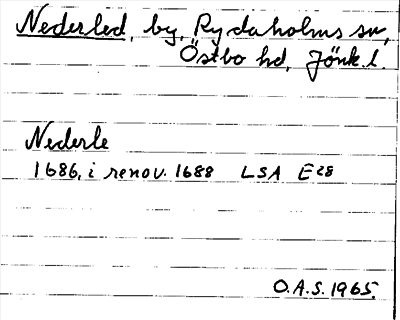 Nederled, by, Rydaholms sn,
Östbo hd, Jönk. l.
Nederle
1686, i renov. 1688 LSA E 28
O.A.S. 1965.